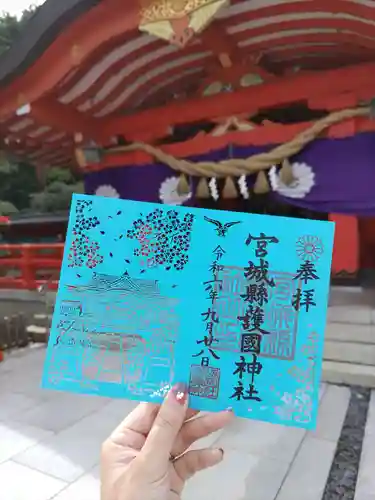 奉拝
宮城縣護國神社
令和六年九月廿八日